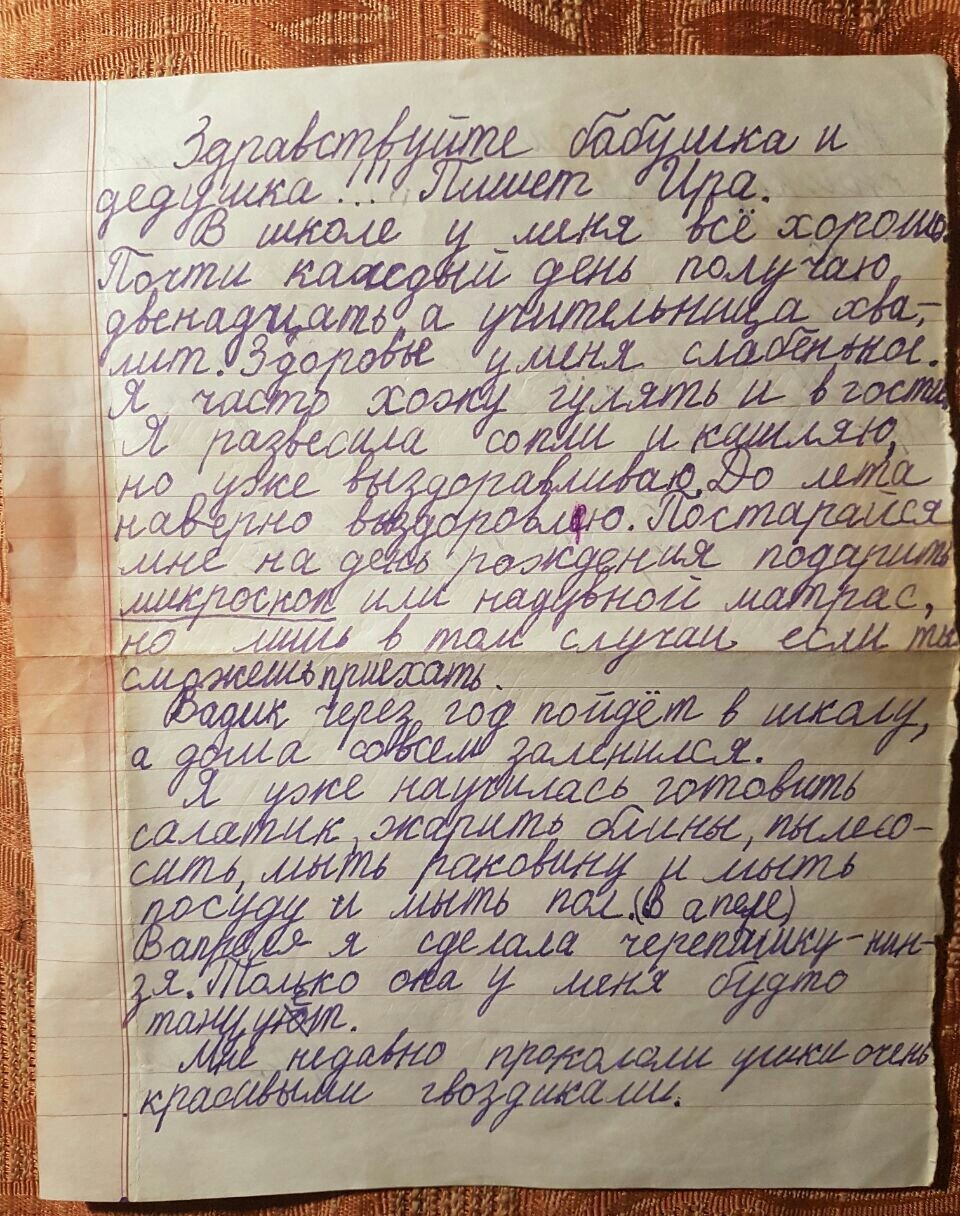 Здравствуйте бабушка и
дедушка!!! Пишет Ира.
В школе у меня всё хорошо.
Почти каждый день получаю
двенадцать, а учительница хва-
лит. Здоровье у меня слабенькое.
Я часто хожу гулять и в гости.
Я развесила сопли и кашляю,
но уже выздоравливаю. До лета
наверно выздоровлю. Постарайся
мне на день рождения подарить
микроскоп или надувной матрас,
но лишь в том случаи если ты
сможешь приехать.
Вадик через год пойдёт в школу,
а дома совсем заленился.
Я уже научилась готовить
салатик, жарить блины, пылесо-
сить, мыть раковину и мыть
посуду и мыть пол. (В апеле)
В апреля я сделала черепашку-нин-
зя. Только она у меня будто
танцует.
Мне недавно прокололи ушки очень
красивыми гвоздиками.